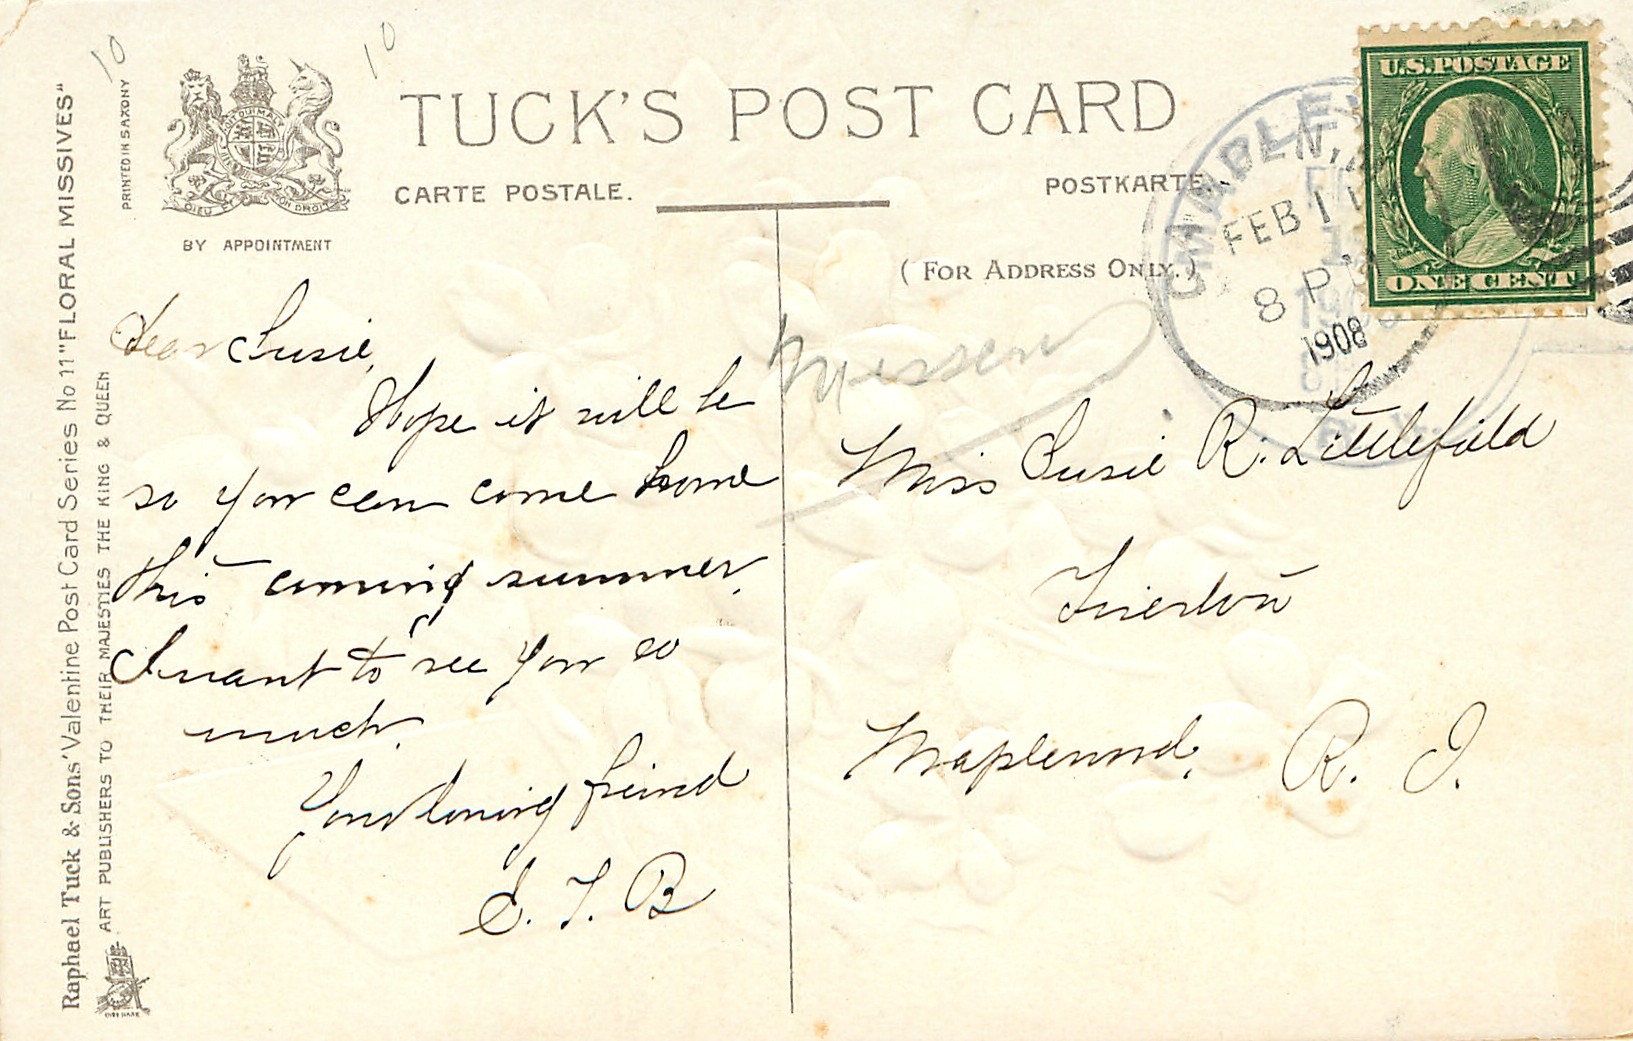 10
10
PRINTED IN SAXONY
DIEU ET MON DROIT
BY APPOINTMENT
TUCK'S POST CARD
CARTE POSTALE.
POSTKARTE.
(FOR ADDRESS ONLY.)
Raphael Tuck & Sons' Valentine Post Card Series No 11 "FLORAL MISSIVES"
ART PUBLISHERS TO THEIR MAJESTIES THE KING & QUEEN
U.S. POSTAGE
ONE CENT
FEB 11
8 P
1908
Dear Susie,
Hope it will be
so you can come home
this coming summer.
I want to see you so
much.
Your loving freind
S. T. B
Miss Susie R. Littlefield
Tiverton
Maplewood, R. I.